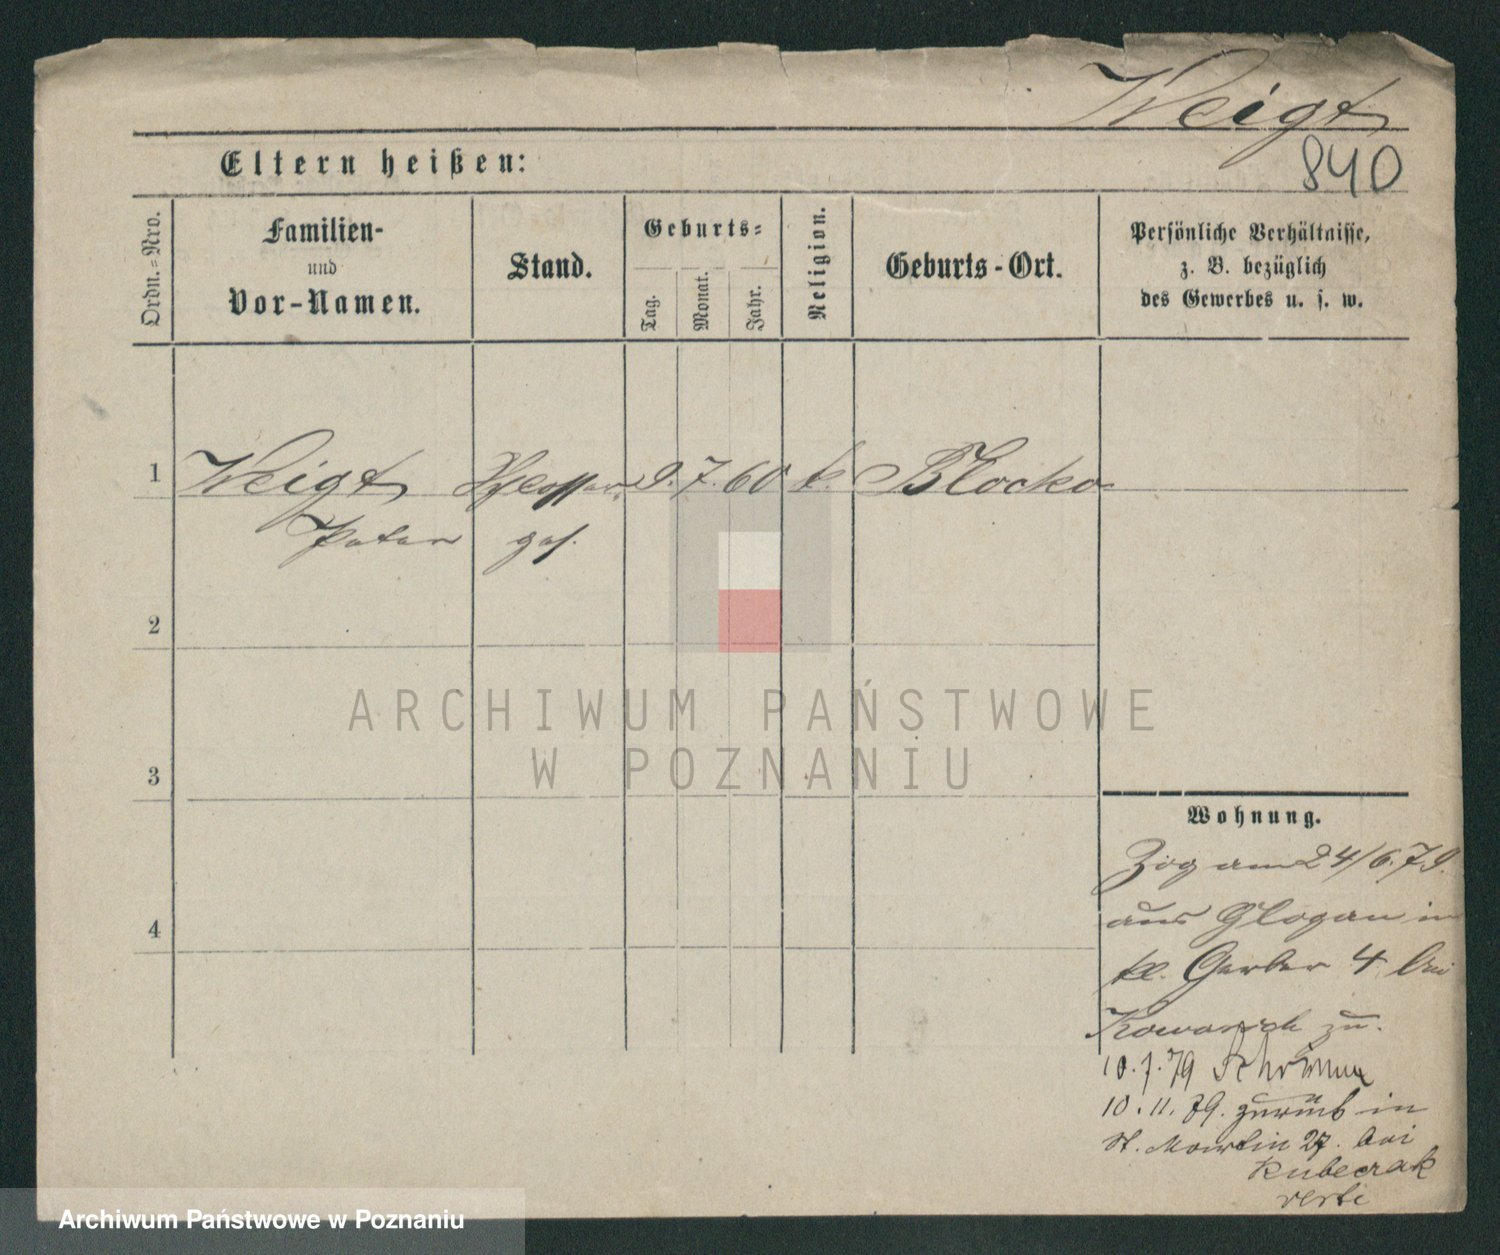 Weigt
840
Eltern heißen:
Ordn.=Nro.
Familien-
und
Vor-Namen.
Stand.
Geburts=
Tag.
Monat.
Jahr.
Religion.
Geburts-Ort.
Persönliche Verhältnisse,
z. B. bezüglich
des Gewerbes u. s. w.
1 Weigt Schlosser 9. 7. 60 k.
Peter ges.
2
3
4
ARCHIWUM PAŃSTWOWE
W POZNANIU
Wohnung.
Zog am 24/6.79.
aus Glogau in
kl. Gerber 4 bei
zu.
10.7.79
10.11.79. zurück in
St. Martin 27. bei
verte
Archiwum Państwowe w Poznaniu